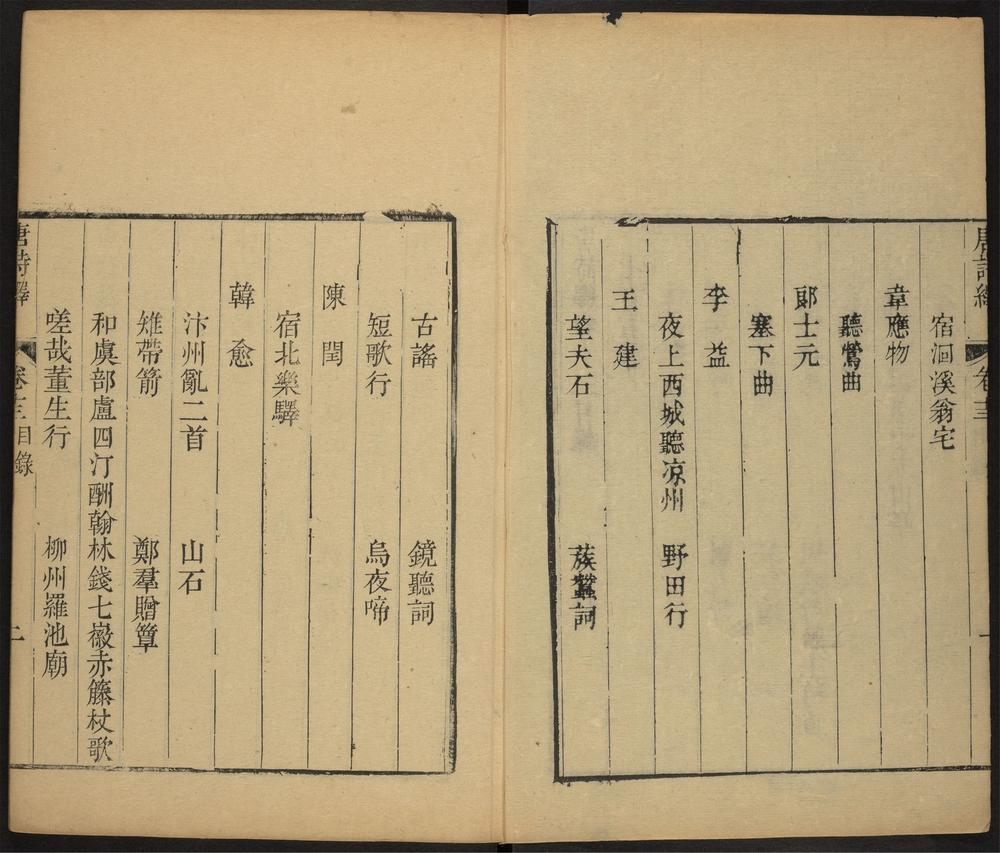 唐詩繹 卷三 一
宿洄溪翁宅
韋應物
聽鶯曲
郎士元
塞下曲
李益
夜上西城聽凉州 野田行
王建
望夫石 蔟蠶詞
古謠 鏡聽詞
短歌行 烏夜啼
陳閏
宿北樂驛
韓愈
汴州亂二首 山石
雉帶箭 鄭羣贈簟
和虞部盧四汀酬翰林錢七徽赤籐杖歌
嗟哉董生行 柳州羅池廟
唐詩繹 卷三目錄 二